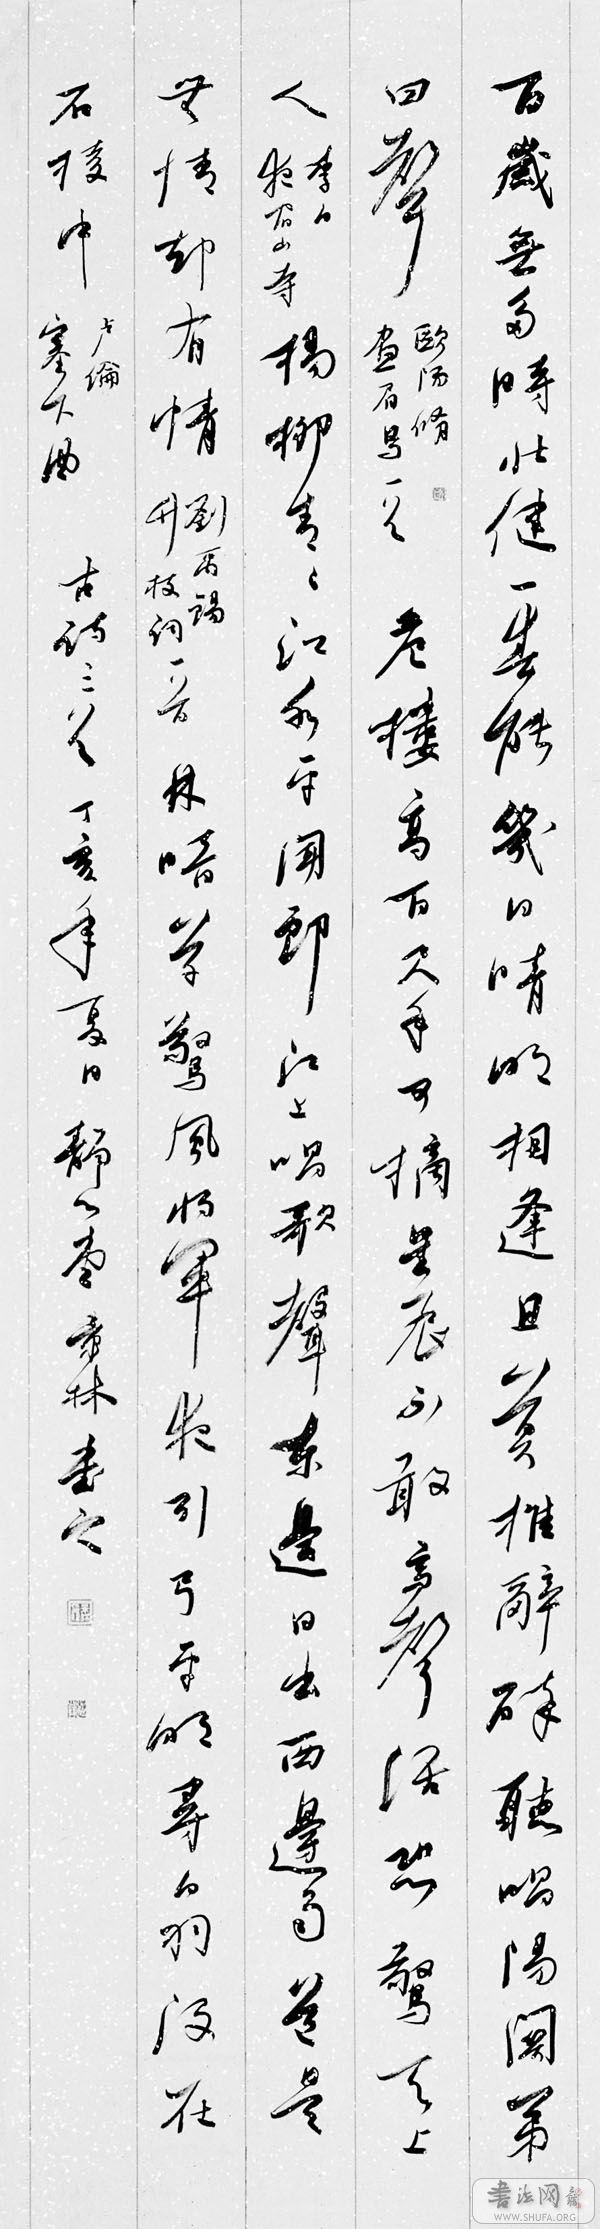 百歲無多時壯健一春能幾日晴明相逢且莫推辭醉聽唱陽關第
四聲 歐陽脩 畫眉鳥一首 危樓高百尺手可摘星辰不敢高聲語恐驚天上
人 李白 夜宿山寺 楊柳青々江水平聞郎江上唱歌聲東邊日出西邊雨道是
無情却有情 劉禹錫 竹枝詞一首 林暗草驚風將軍夜引弓平明尋白羽沒在
石棱中 卢倫 塞下曲 古詩三首 丁亥年夏日靜心 林書之
書法网
WWW.SHUFA.ORG